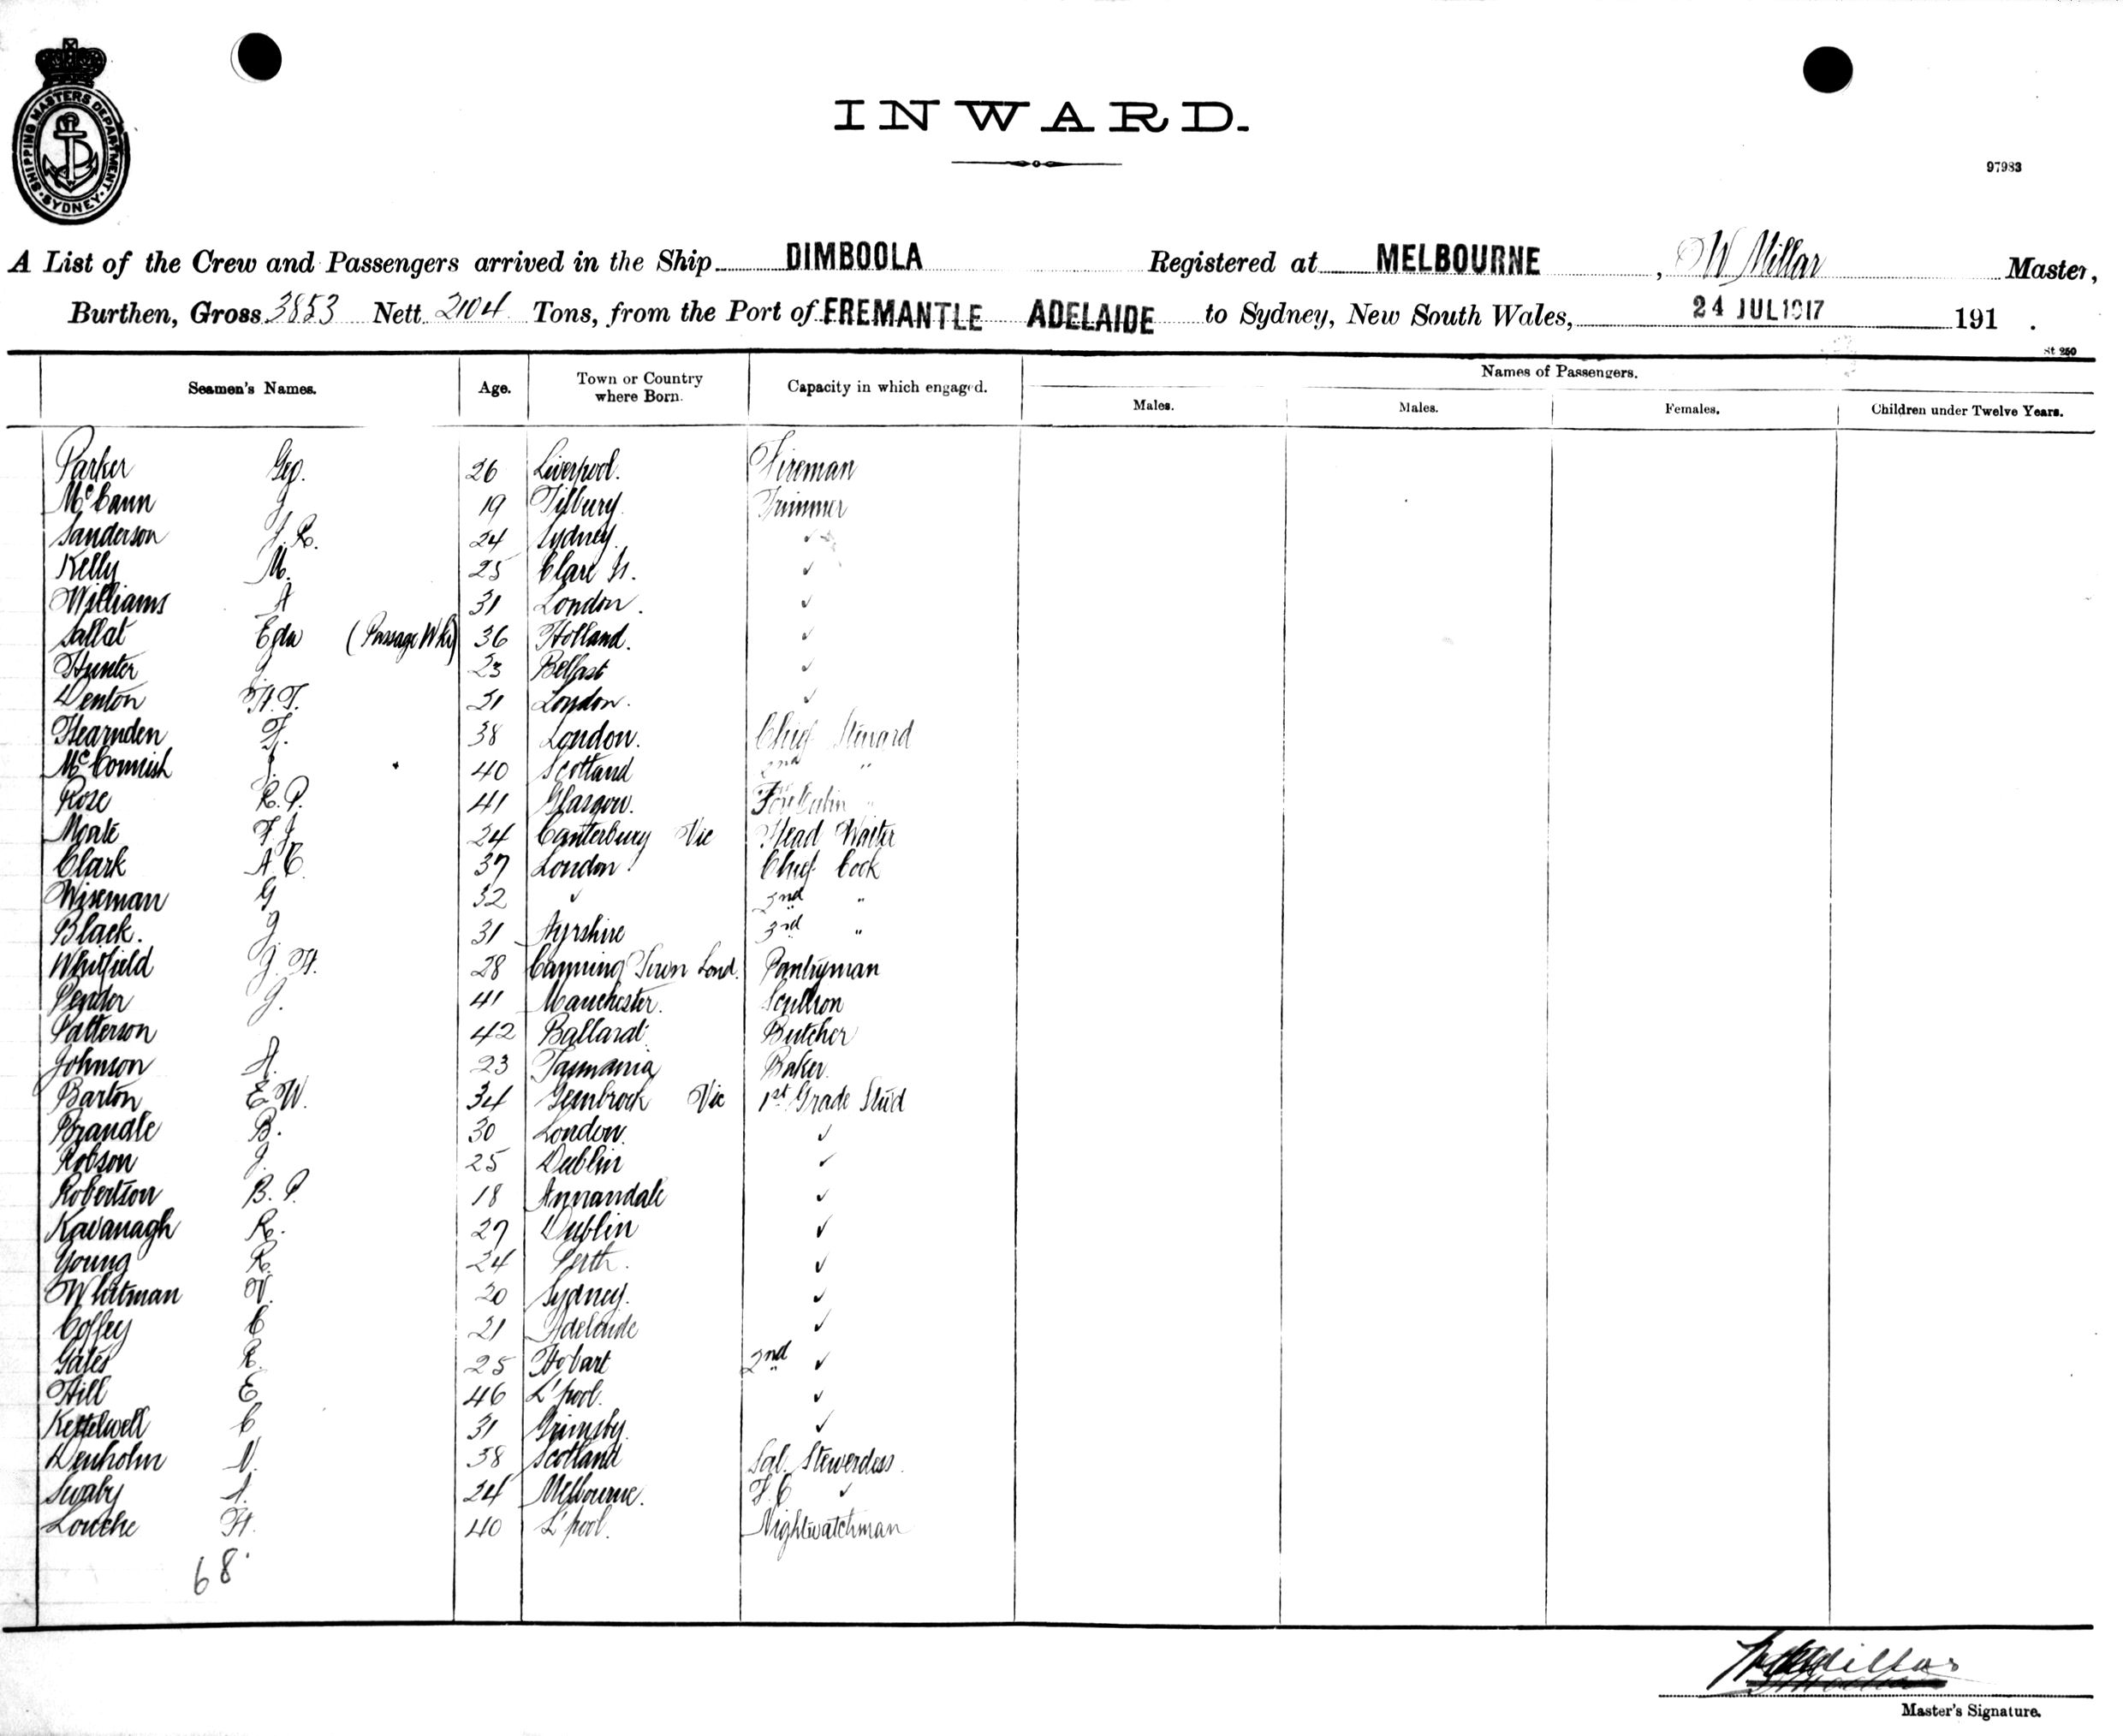 SHIPPING MASTERS DEPARTMENT. SYDNEY
INWARD.
97983
A List of the Crew and Passengers arrived in the Ship DIMBOOLA Registered at MELBOURNE, W Millar Master,
Burthen, Gross 3853 Nett 2104 Tons, from the Port of FREMANTLE ADELAIDE to Sydney, New South Wales, 24 JUL 1917 191 .
St 250
Seamen's Names. Age. Town or Country where Born. Capacity in which engaged. Names of Passengers.
Males. Males. Females. Children under Twelve Years.
Parker Geo. 26 Liverpool. Fireman
McCann J 19 Tilbury. Trimmer
Sanderson J. R. 24 Sydney. ✓
Kelly M. 25 Clare Ir. ✓
Williams A 31 London. ✓
Sallat (Passage Wkg) 36 Holland. ✓
Hunter J 23 Belfast ✓
Denton H. T. 31 London. ✓
Hearnden F. 38 London. Chief Steward
McCormish J. 40 Scotland 2nd "
Rose R. P. 41 Glasgow. Fore Cabin "
Moate F. J 24 Canterbury Vic Head Waiter
Clark A. C. 37 London Chief Cook
Wiseman G 32 ✓ 2nd "
Black. J 31 Ayrshire 3rd "
Whitfield J. H. 28 Canning Town Lond. Pantryman
Pender J. 41 Manchester. Scullion
Patterson 42 Ballarat. Butcher
Johnson A. 23 Tasmania Baker.
Barton E. W. 34 Gembrook Vic 1st Grade Stud
Brandle B. 30 London. ✓
Robson J. 25 Dublin ✓
Robertson B. P. 18 Annandale ✓
Kavanagh R. 27 Dublin ✓
Young R. 24 Perth. ✓
Whitman N. 20 Sydney. ✓
Coffey C 21 Adelaide ✓
Gates R. 25 Hobart 2nd ✓
Hill E 46 L'pool. ✓
Kettelwell C 31 Grimsby. ✓
Denholm N. 38 Scotland Sal. Stewerdess.
Swaby A. 24 Melbourne. F. C ✓
Louche H. 40 L'pool. Nightwatchman
68
W Millar
Master's Signature.